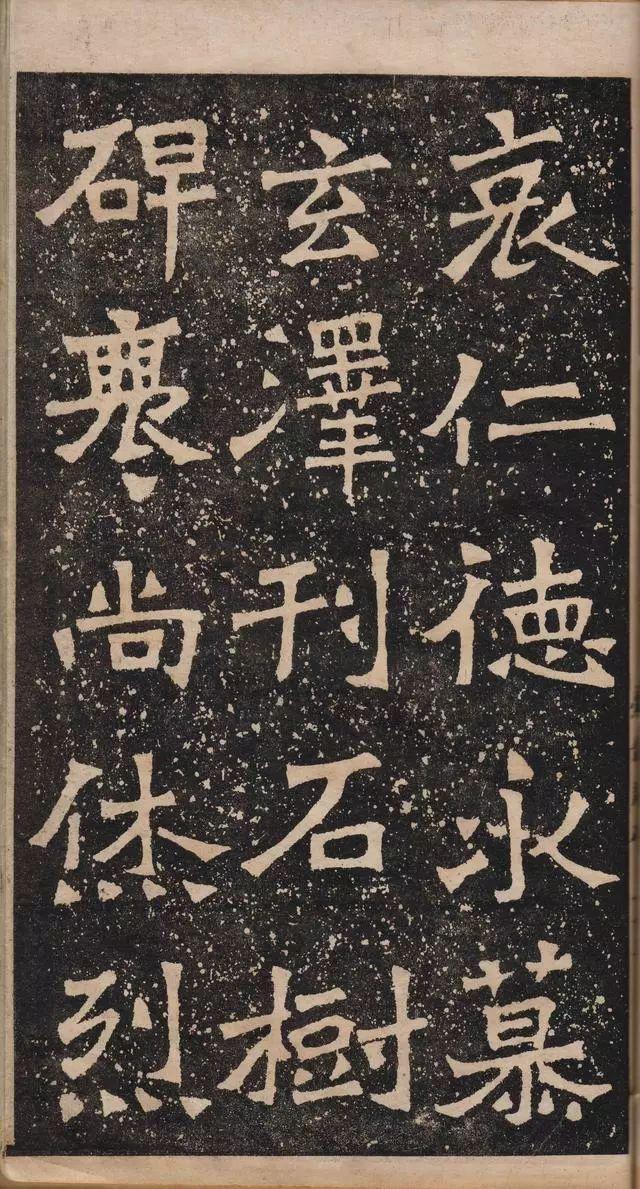 哀仁德永慕
玄澤刊石樹
碑褒尚烋烈